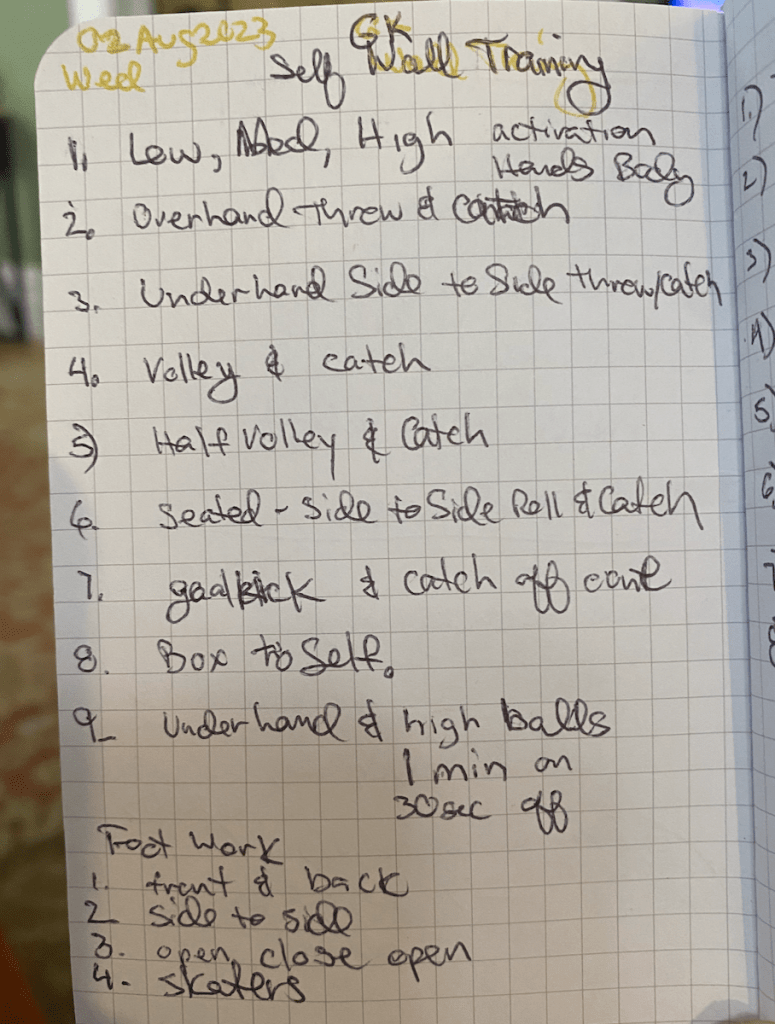 02 Aug 2023
Wed
GK
Self Wall Training
1, Low, Med, High activation
Hands Body
2. Overhand Threw & Catch
3. Underhand Side to Side threw/catch
4. Volley & catch
5) Half Volley & Catch
6. Seated - Side to Side Roll & Catch
7. goal kick & catch off cone
8. Box to Self.
9_ Underhand & high balls
1 min on
30 sec off
Foot Work
1. front & back
2 side to side
3. open, close open
4. skaters
1)
2)
3)
4)
5)
6
7
8